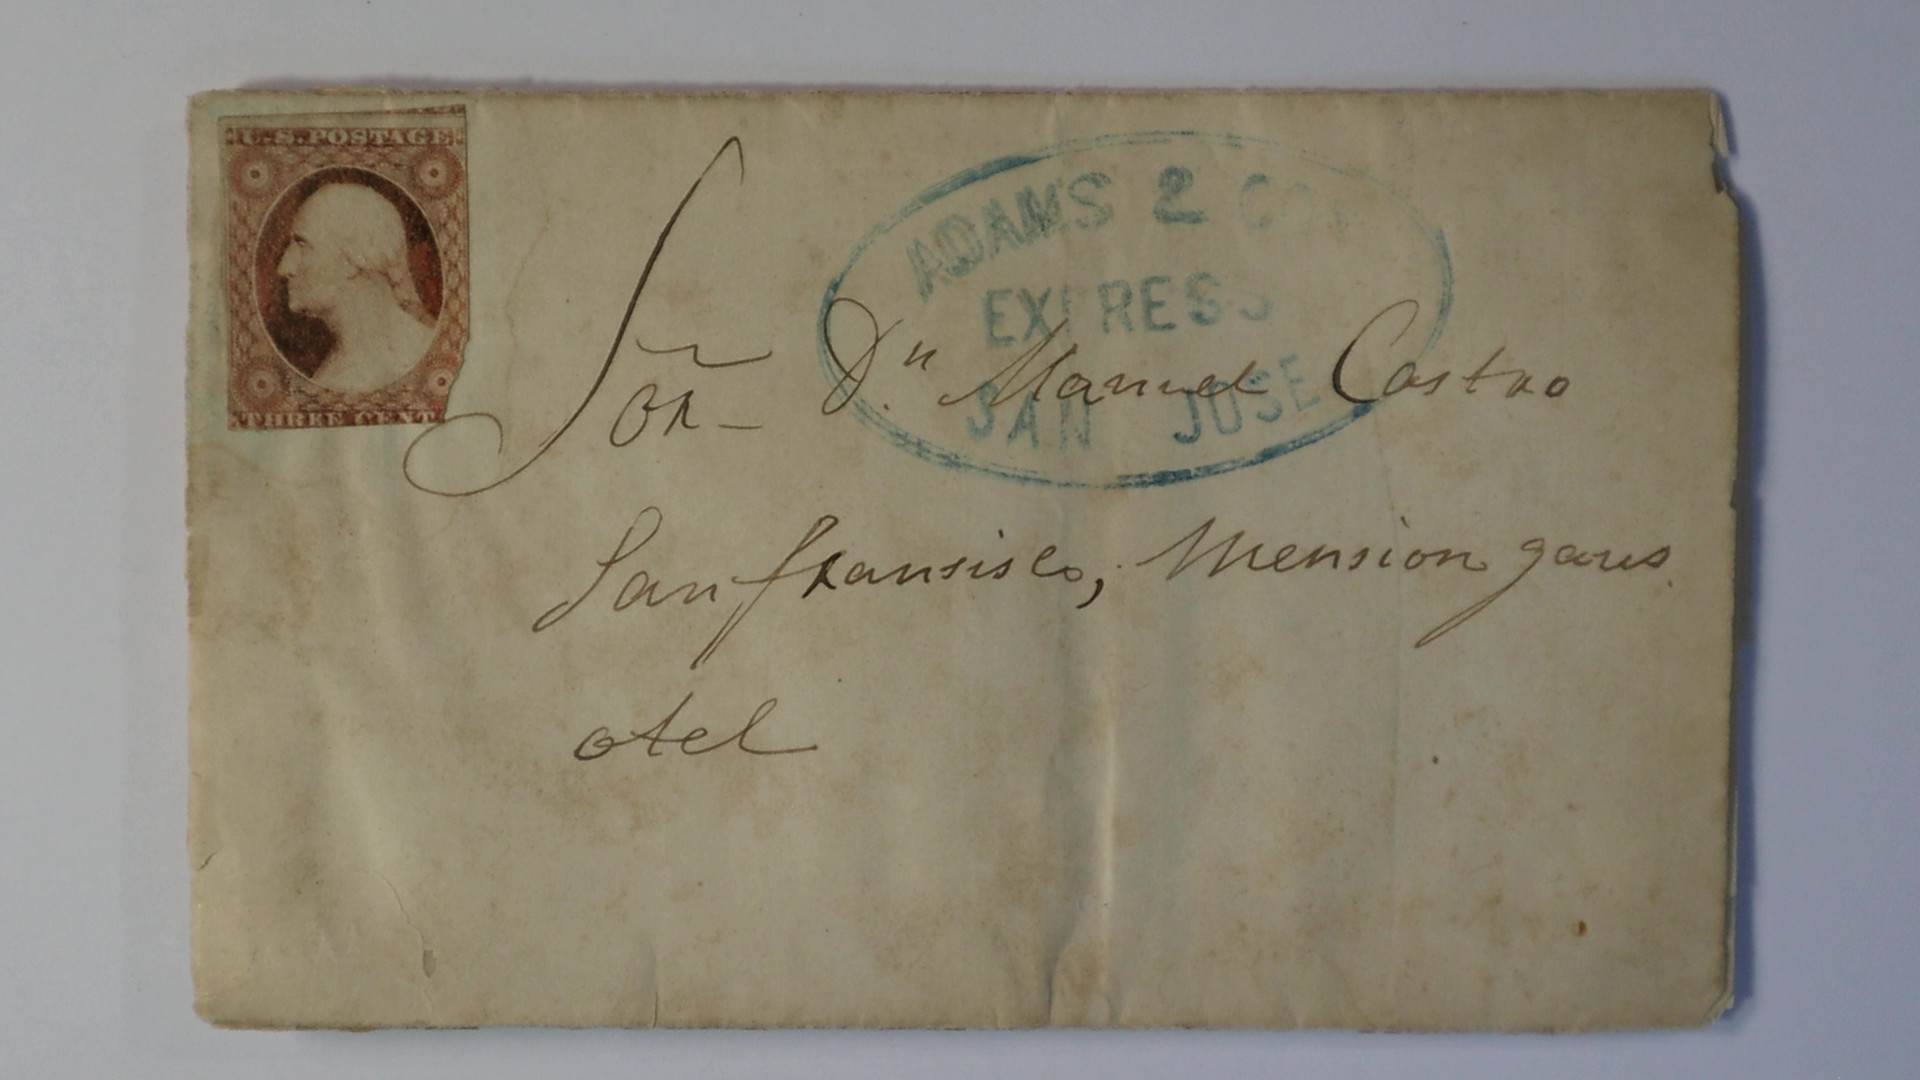 U.S. POSTAGE
THREE CENT
ADAMS & CO
EXPRESS
SAN JOSE
Sor̃ Dn. Manuel Castro
San fransisco, Mension
otel